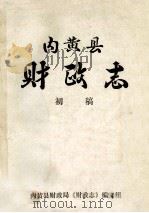 内黄县
财政志
初稿
内黄县财政局《财政志》编纂组